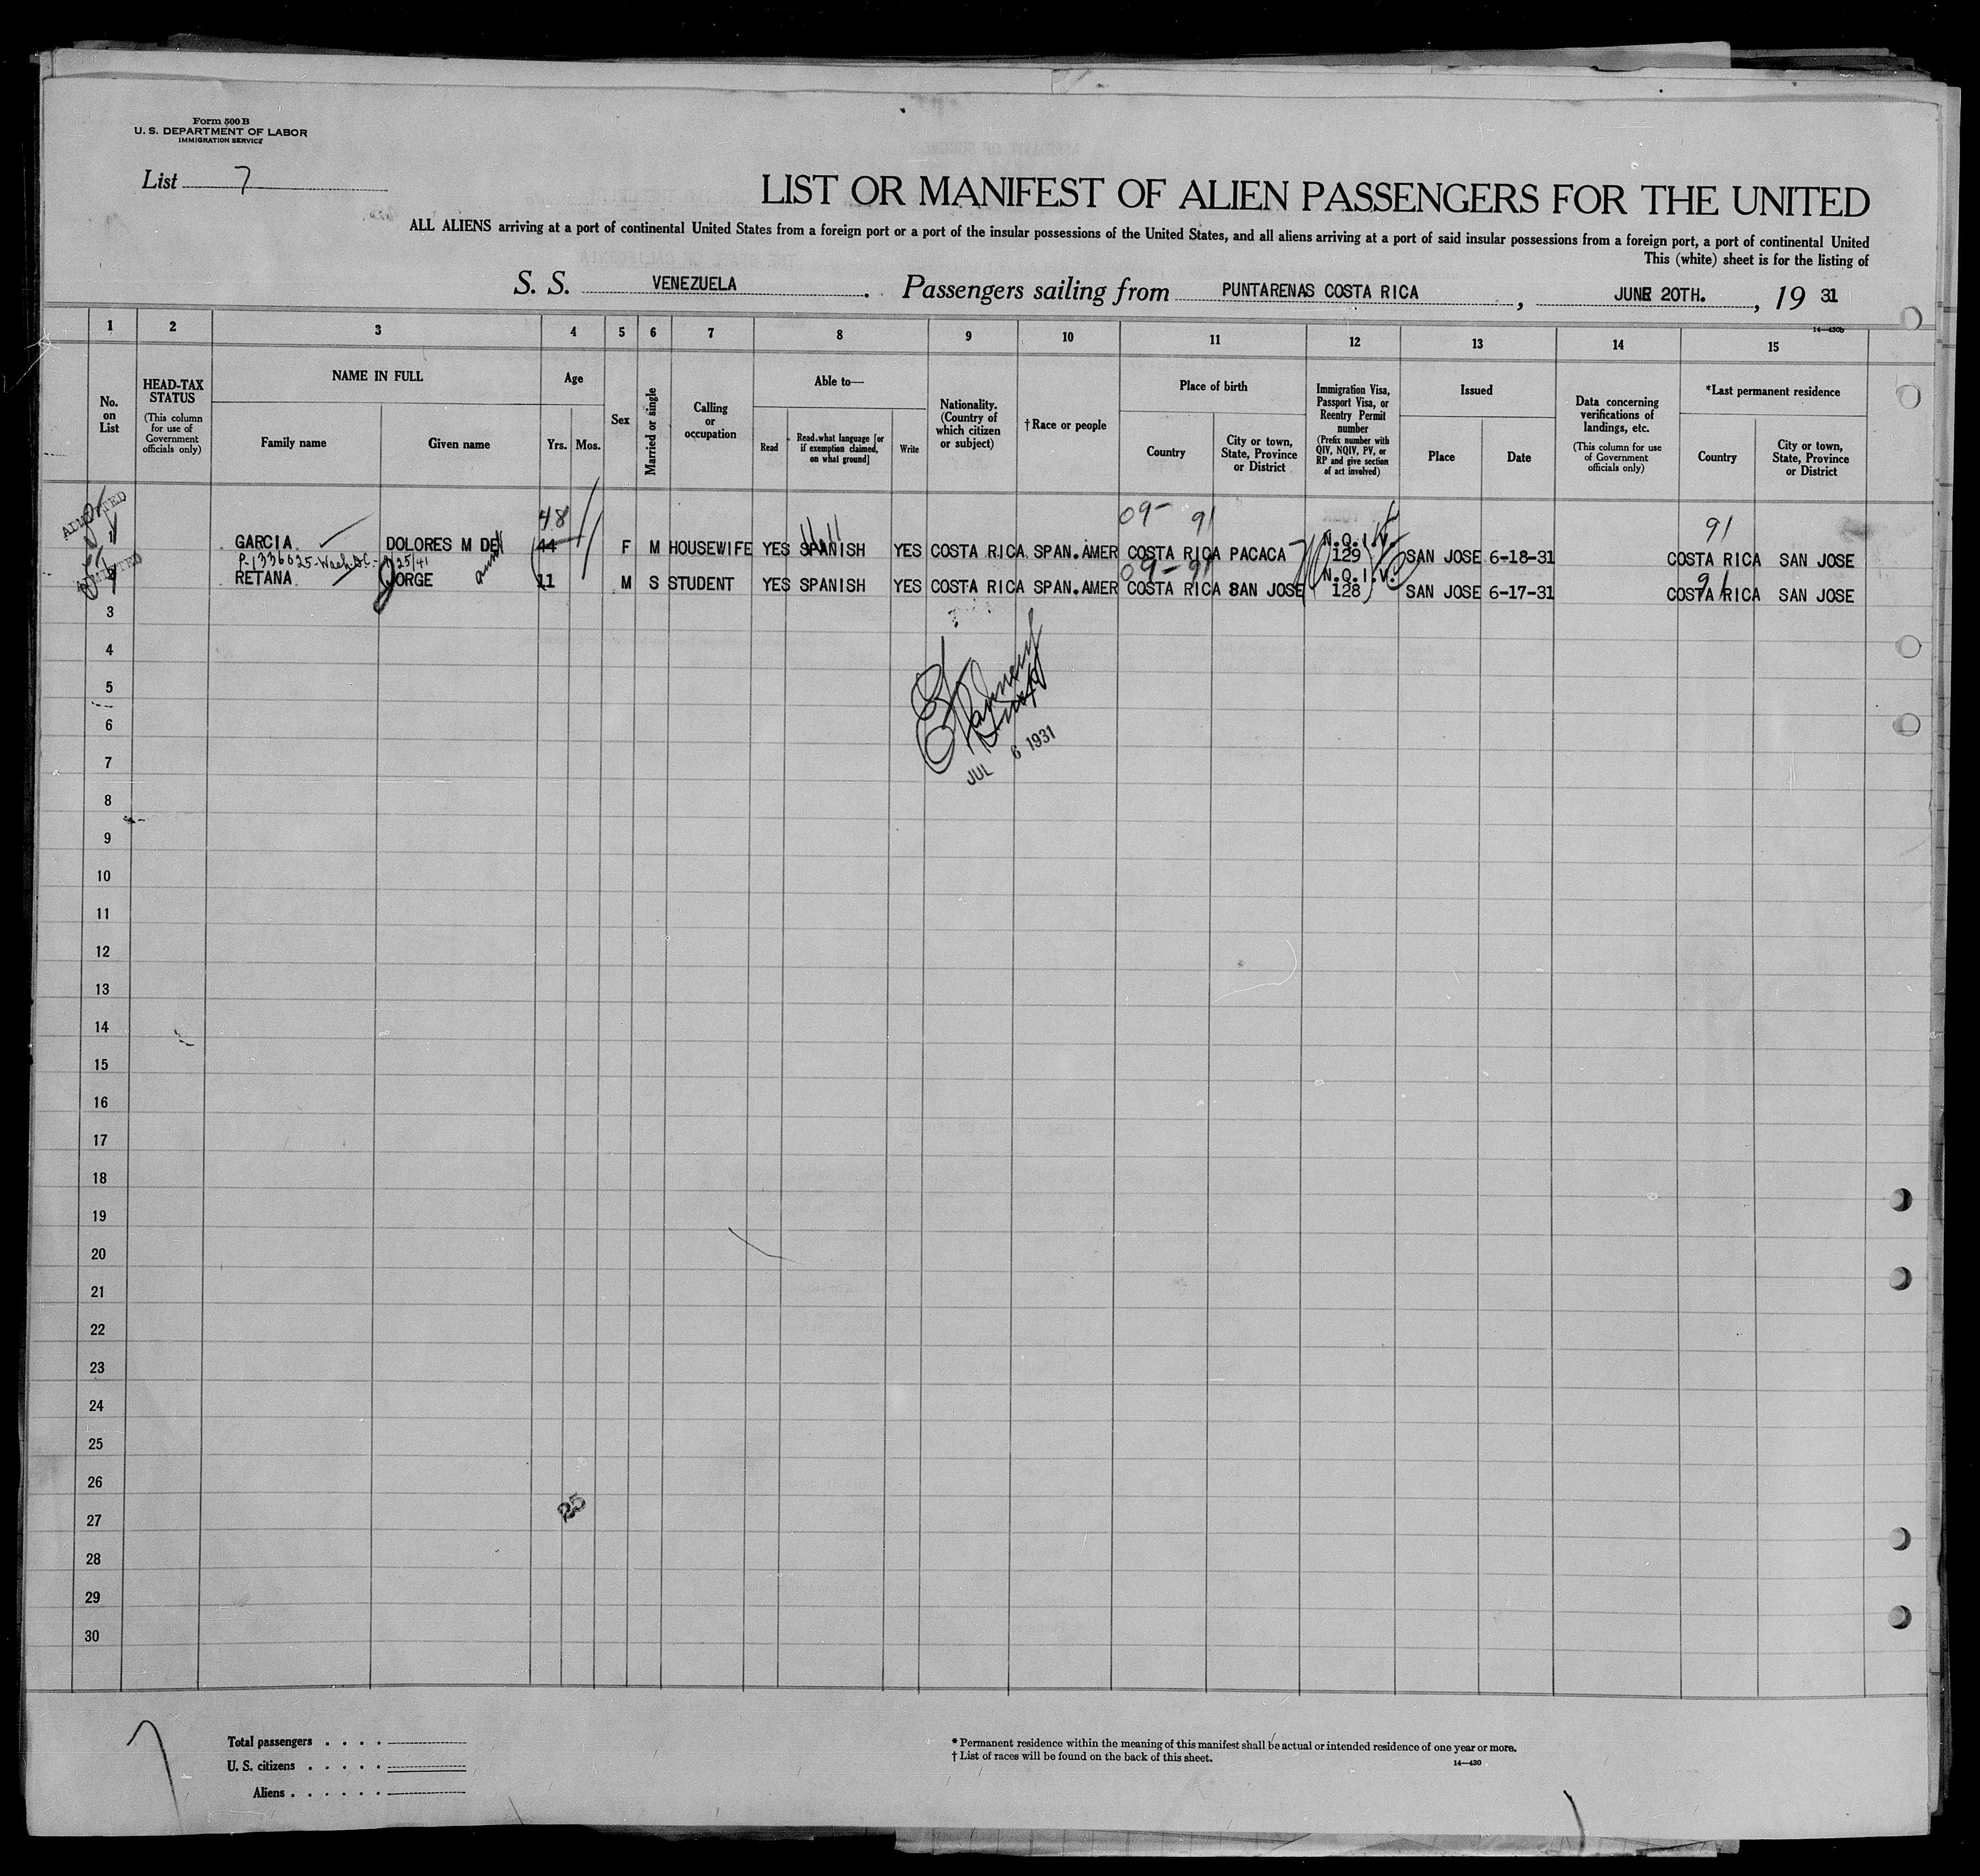 Form 500 B
U. S. DEPARTMENT OF LABOR
IMMIGRATION SERVICE
List 7
LIST OR MANIFEST OF ALIEN PASSENGERS FOR THE UNITED
ALL ALIENS arriving at a port of continental United States from a foreign port or a port of the insular possessions of the United States, and all aliens arriving at a port of said insular possessions from a foreign port, a port of continental United
This (white) sheet is for the listing of
S. S. VENEZUELA. Passengers sailing from PUNTARENAS COSTA RICA, JUNE 20TH., 19 31
14—430b
1 2 3 4 5 6 7 8 9 10 11 12 13 14 15
No. on List
HEAD-TAX STATUS
(This column for use of Government officials only)
NAME IN FULL
Family name
Given name
Age
Yrs. Mos.
Sex
Married or single
Calling or occupation
Able to—
Read
Read what language [or if exemption claimed, on what ground]
Write
Nationality. (Country of which citizen or subject)
†Race or people
Place of birth
Country
City or town, State, Province or District
Immigration Visa, Passport Visa, or Reentry Permit number
(Prefix number with QIV, NQIV, PV, or RP and give section of act involved)
Issued
Place
Date
Data concerning verifications of landings, etc.
(This column for use of Government officials only)
*Last permanent residence
Country
City or town, State, Province or District
48 09- 91 91
ADMITTED
1 GARCIA DOLORES M DE 44 F M HOUSEWIFE YES SPANISH YES COSTA RICA SPAN.AMER COSTA RICA PACACA N.Q.I.V. 129 SAN JOSE 6-18-31 COSTA RICA SAN JOSE
P-1336025-Wash.D.C.- 25/41
09- 91 91
ADMITTED
2 RETANA JORGE aunt 11 M S STUDENT YES SPANISH YES COSTA RICA SPAN.AMER COSTA RICA SAN JOSE N.Q.I.V. 128 SAN JOSE 6-17-31 COSTA RICA SAN JOSE
3
4
5
6
JUL 6 1931
7
8
9
10
11
12
13
14
15
16
17
18
19
20
21
22
23
24
25
26
25
27
28
29
30
Total passengers . . . .
U. S. citizens . . . . .
Aliens . . . . . .
* Permanent residence within the meaning of this manifest shall be actual or intended residence of one year or more.
† List of races will be found on the back of this sheet.
14—430